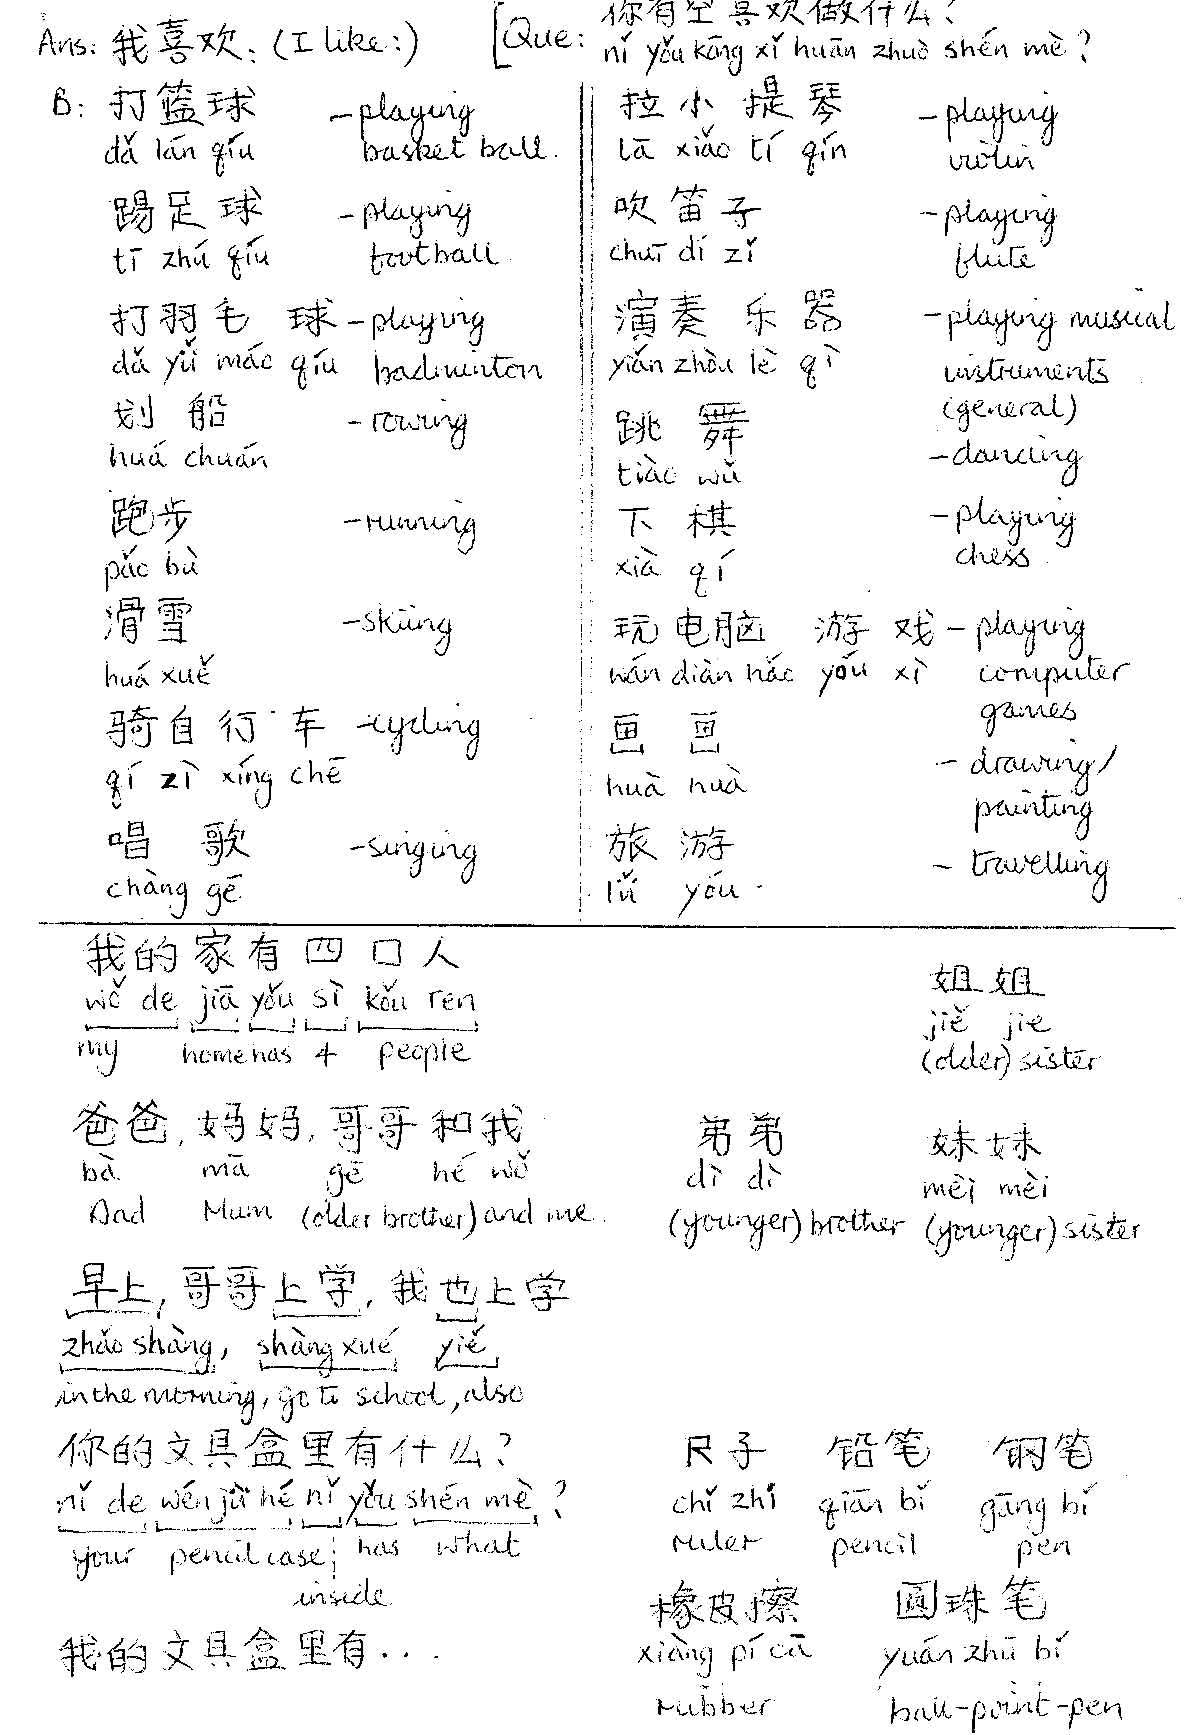 Ans: 我喜欢: (I like:)
[Que: 你有空喜欢做什么?
nǐ yǒu kōng xǐ huān zhuò shén mè?
B: 打篮球 – playing basket ball.
dǎ lán qíu
踢足球 – playing football
tī zhú qíu
打羽毛球 – playing badminton
dǎ yǔ máo qíu
划船 – rowing
huá chuán
跑步 – running
pǎo bù
滑雪 – skiing
huá xuě
骑自行车 – cycling
qí zì xíng chē
唱歌 – singing
chàng gē
拉小提琴 – playing violin
lā xiǎo tí qín
吹笛子 – playing flute
chuī dí zǐ
演奏乐器 – playing musical instruments (general)
yiǎn zhòu lè qì
跳舞 – dancing
tiào wǔ
下棋 – playing chess
xià qí
玩电脑游戏 – playing computer games
wán diàn nǎo yóu xì
画画 – drawing/painting
huà huà
旅游 – travelling
lǚ yóu
我的家有四口人
wǒ de jiā yǒu sì kǒu ren
my home has 4 people
姐姐
jiě jie
(older) sister
爸爸, 妈妈, 哥哥和我
bà mā gē hé wǒ
Dad Mum (older brother) and me.
弟弟
dì dì
(younger) brother
妹妹
mèi mèi
(younger) sister
早上, 哥哥上学, 我也上学
zhǎo shàng, shàng xué yiě
in the morning, go to school, also
你的文具盒里有什么?
nǐ de wén jù hé nǐ yǒu shén mè?
your pencil case; has what
inside
我的文具盒里有...
尺子 铅笔 钢笔
chǐ zhǐ qiān bǐ gāng bǐ
ruler pencil pen
橡皮擦 圆珠笔
xiàng pí cā yuán zhū bǐ
rubber ball-point-pen